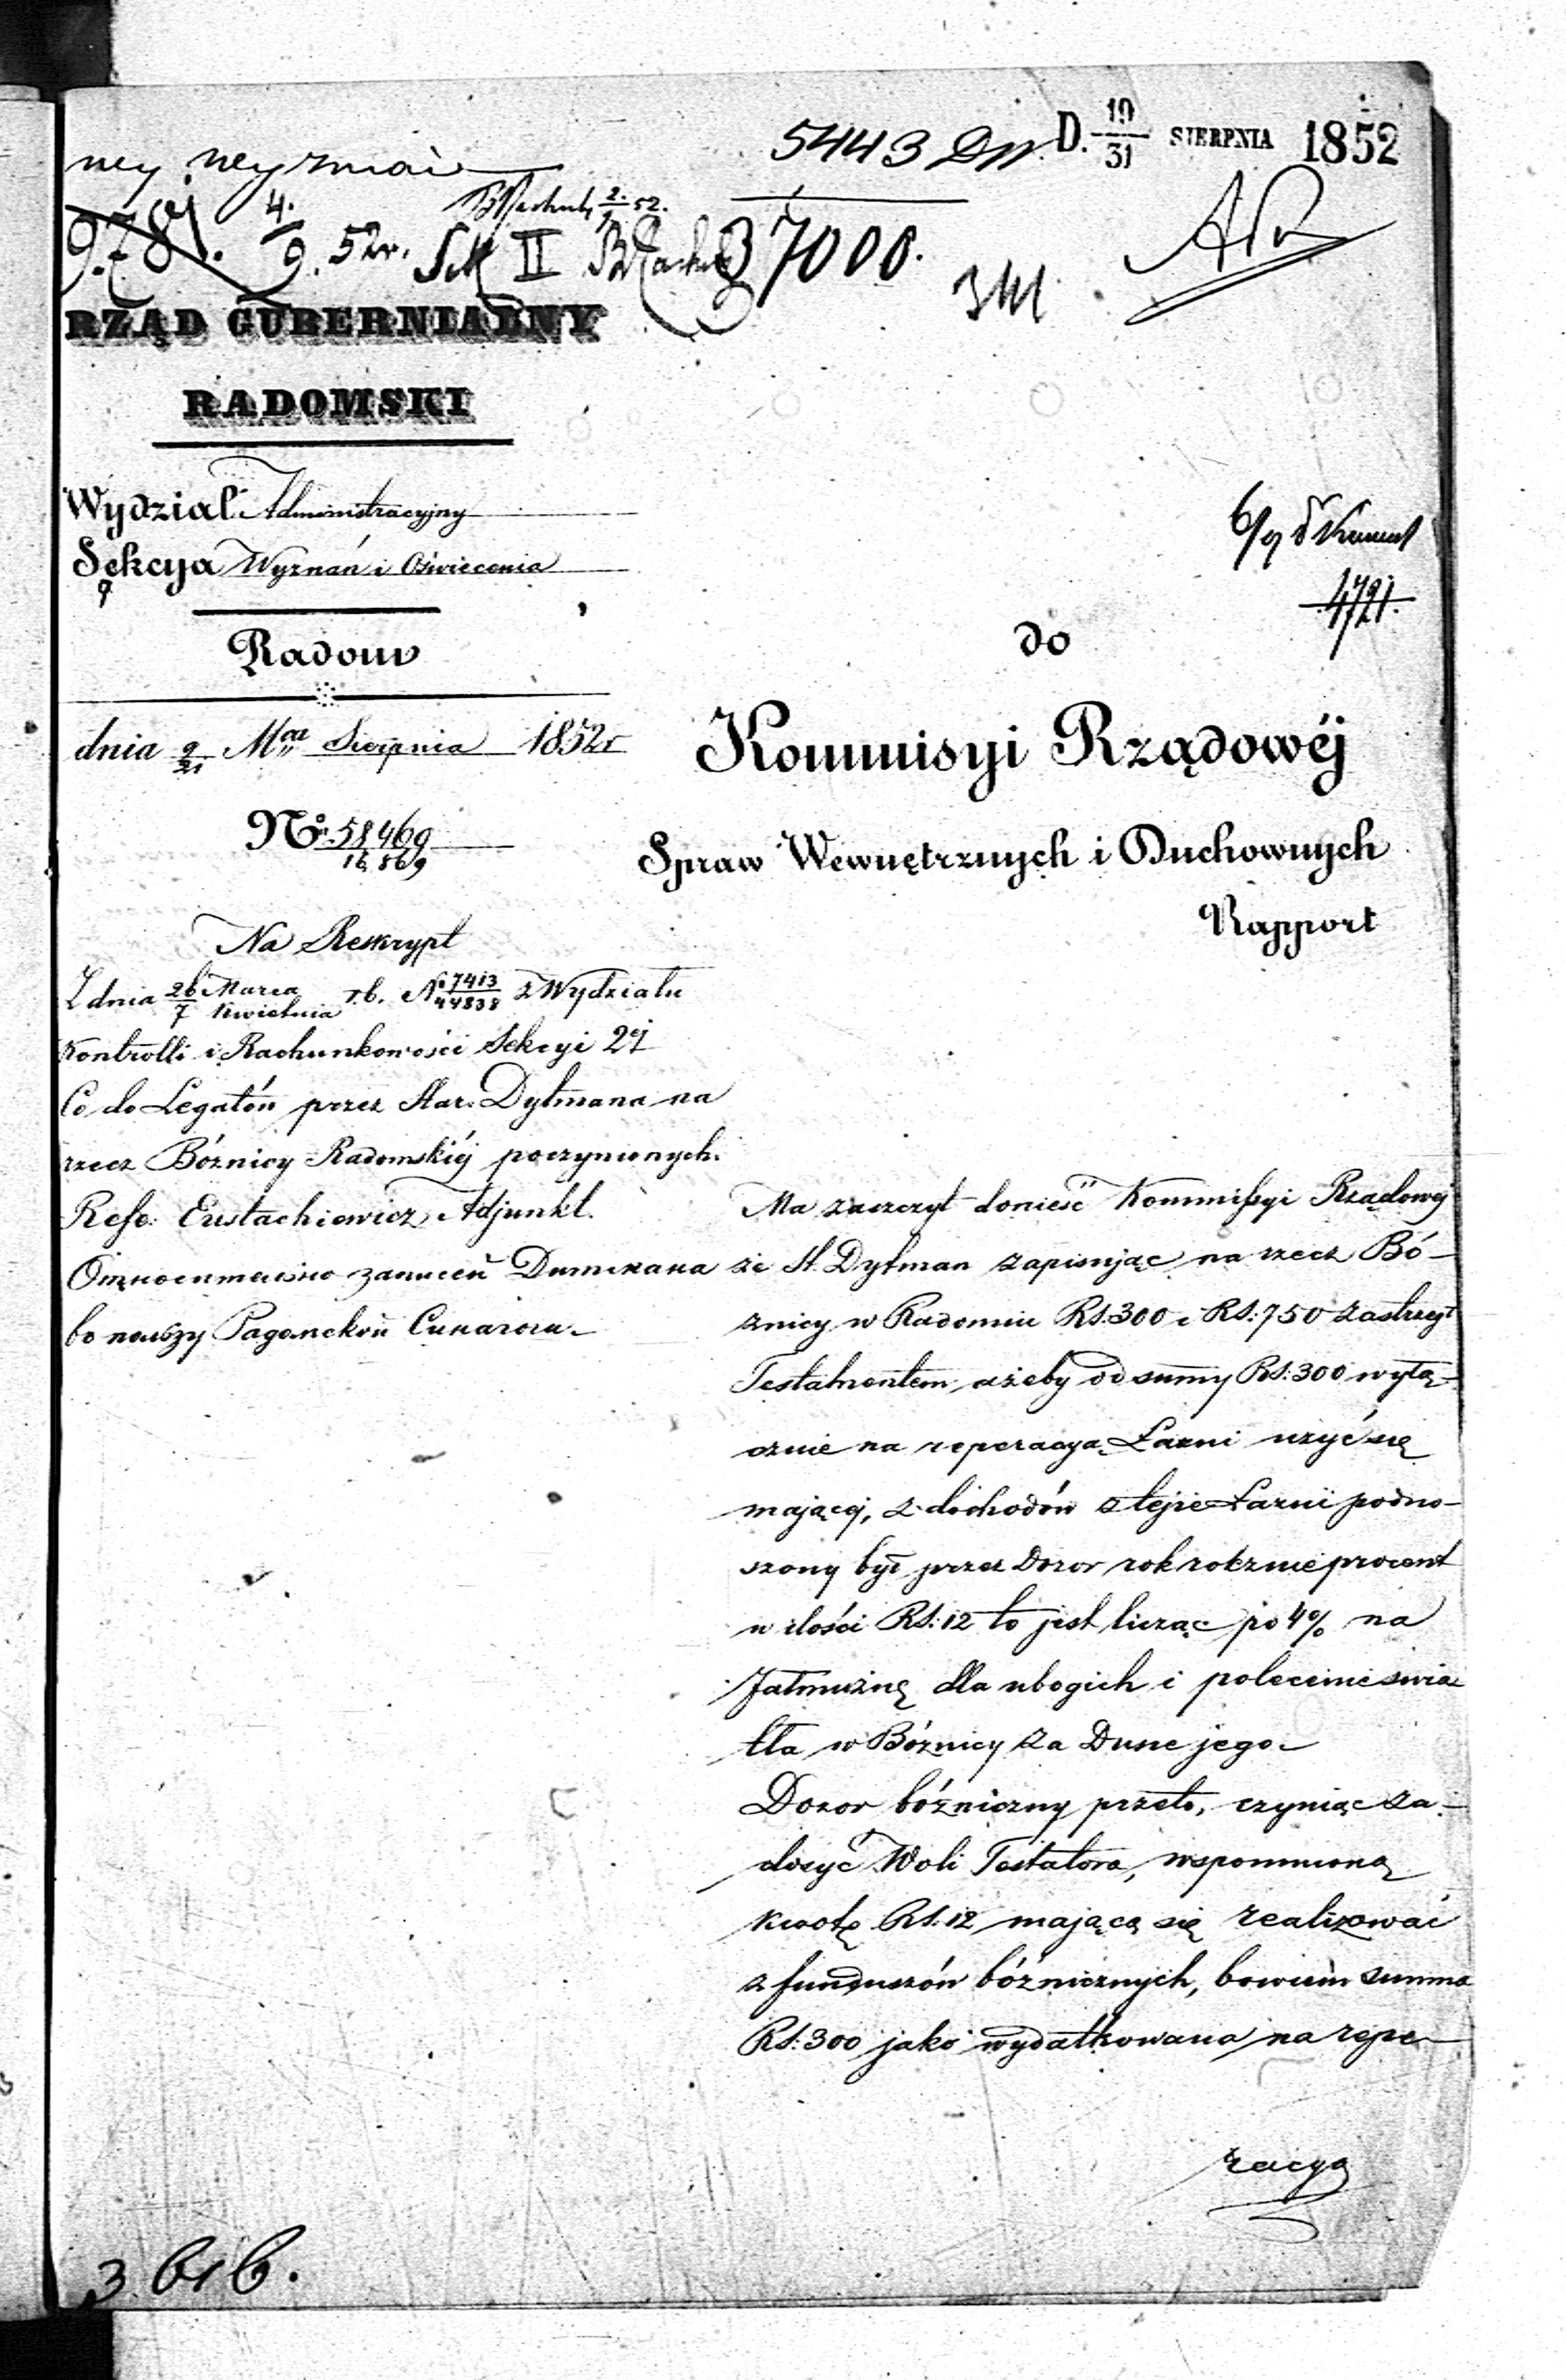 5443 D. 19/31 SIERPNIA 1852
9781. 4/9. 52r. Sek II 37000.
341
RZĄD GUBERNIALNY
RADOMSKI
Wydział Administracyjny
Sekcya Wyznań i Oświecenia
Radom
dnia 9/21 Mca Sierpnia 1852r
No. 58469
16569
4721.
do
Kommisyi Rządowéj
Spraw Wewnętrznych i Duchownych
Rapport
Na Reskrypt
Z dnia 26 Marca / 7 Kwietnia r.b. No 7413/44838 z Wydziału
Kontrolli i Rachunkowości Sekcyi 2éj
Co do Legatów przez Dytmana na
rzecz Bóżnicy Radomskiéj poczynionych.
Refe: Eustachiewicz Adjunkt.
Относительно записей Дитмана
въ пользу Радомской Синагоги
Ma zaszczyt donieść Kommissyi Rządowej
że St. Dytman zapisując na rzecz Bó-
żnicy w Radomiu Rs: 300 i Rs: 750 zastrzegł
Testamentem ażeby od summy Rs: 300 wyłą-
cznie na reperacyą Łazni użyć się
mającej, z dochodów z tejże Łazni podno-
szony był przez Dozor rok rocznie procent
w ilości Rs: 12 to jest licząc po 4% na
Jałmużnę dla ubogich i polecenie świa-
tła w Bóżnicy za Duszę jego.
Dozor bóżniczny przeto, czyniąc za-
dosyć Woli Testatora, wspomnioną
kwotę Rs. 12 mającą się realizować
z funduszów bóżnicznych, bowiem summa
Rs: 300 jako wydatkowana na repe-
racyą
3 616.